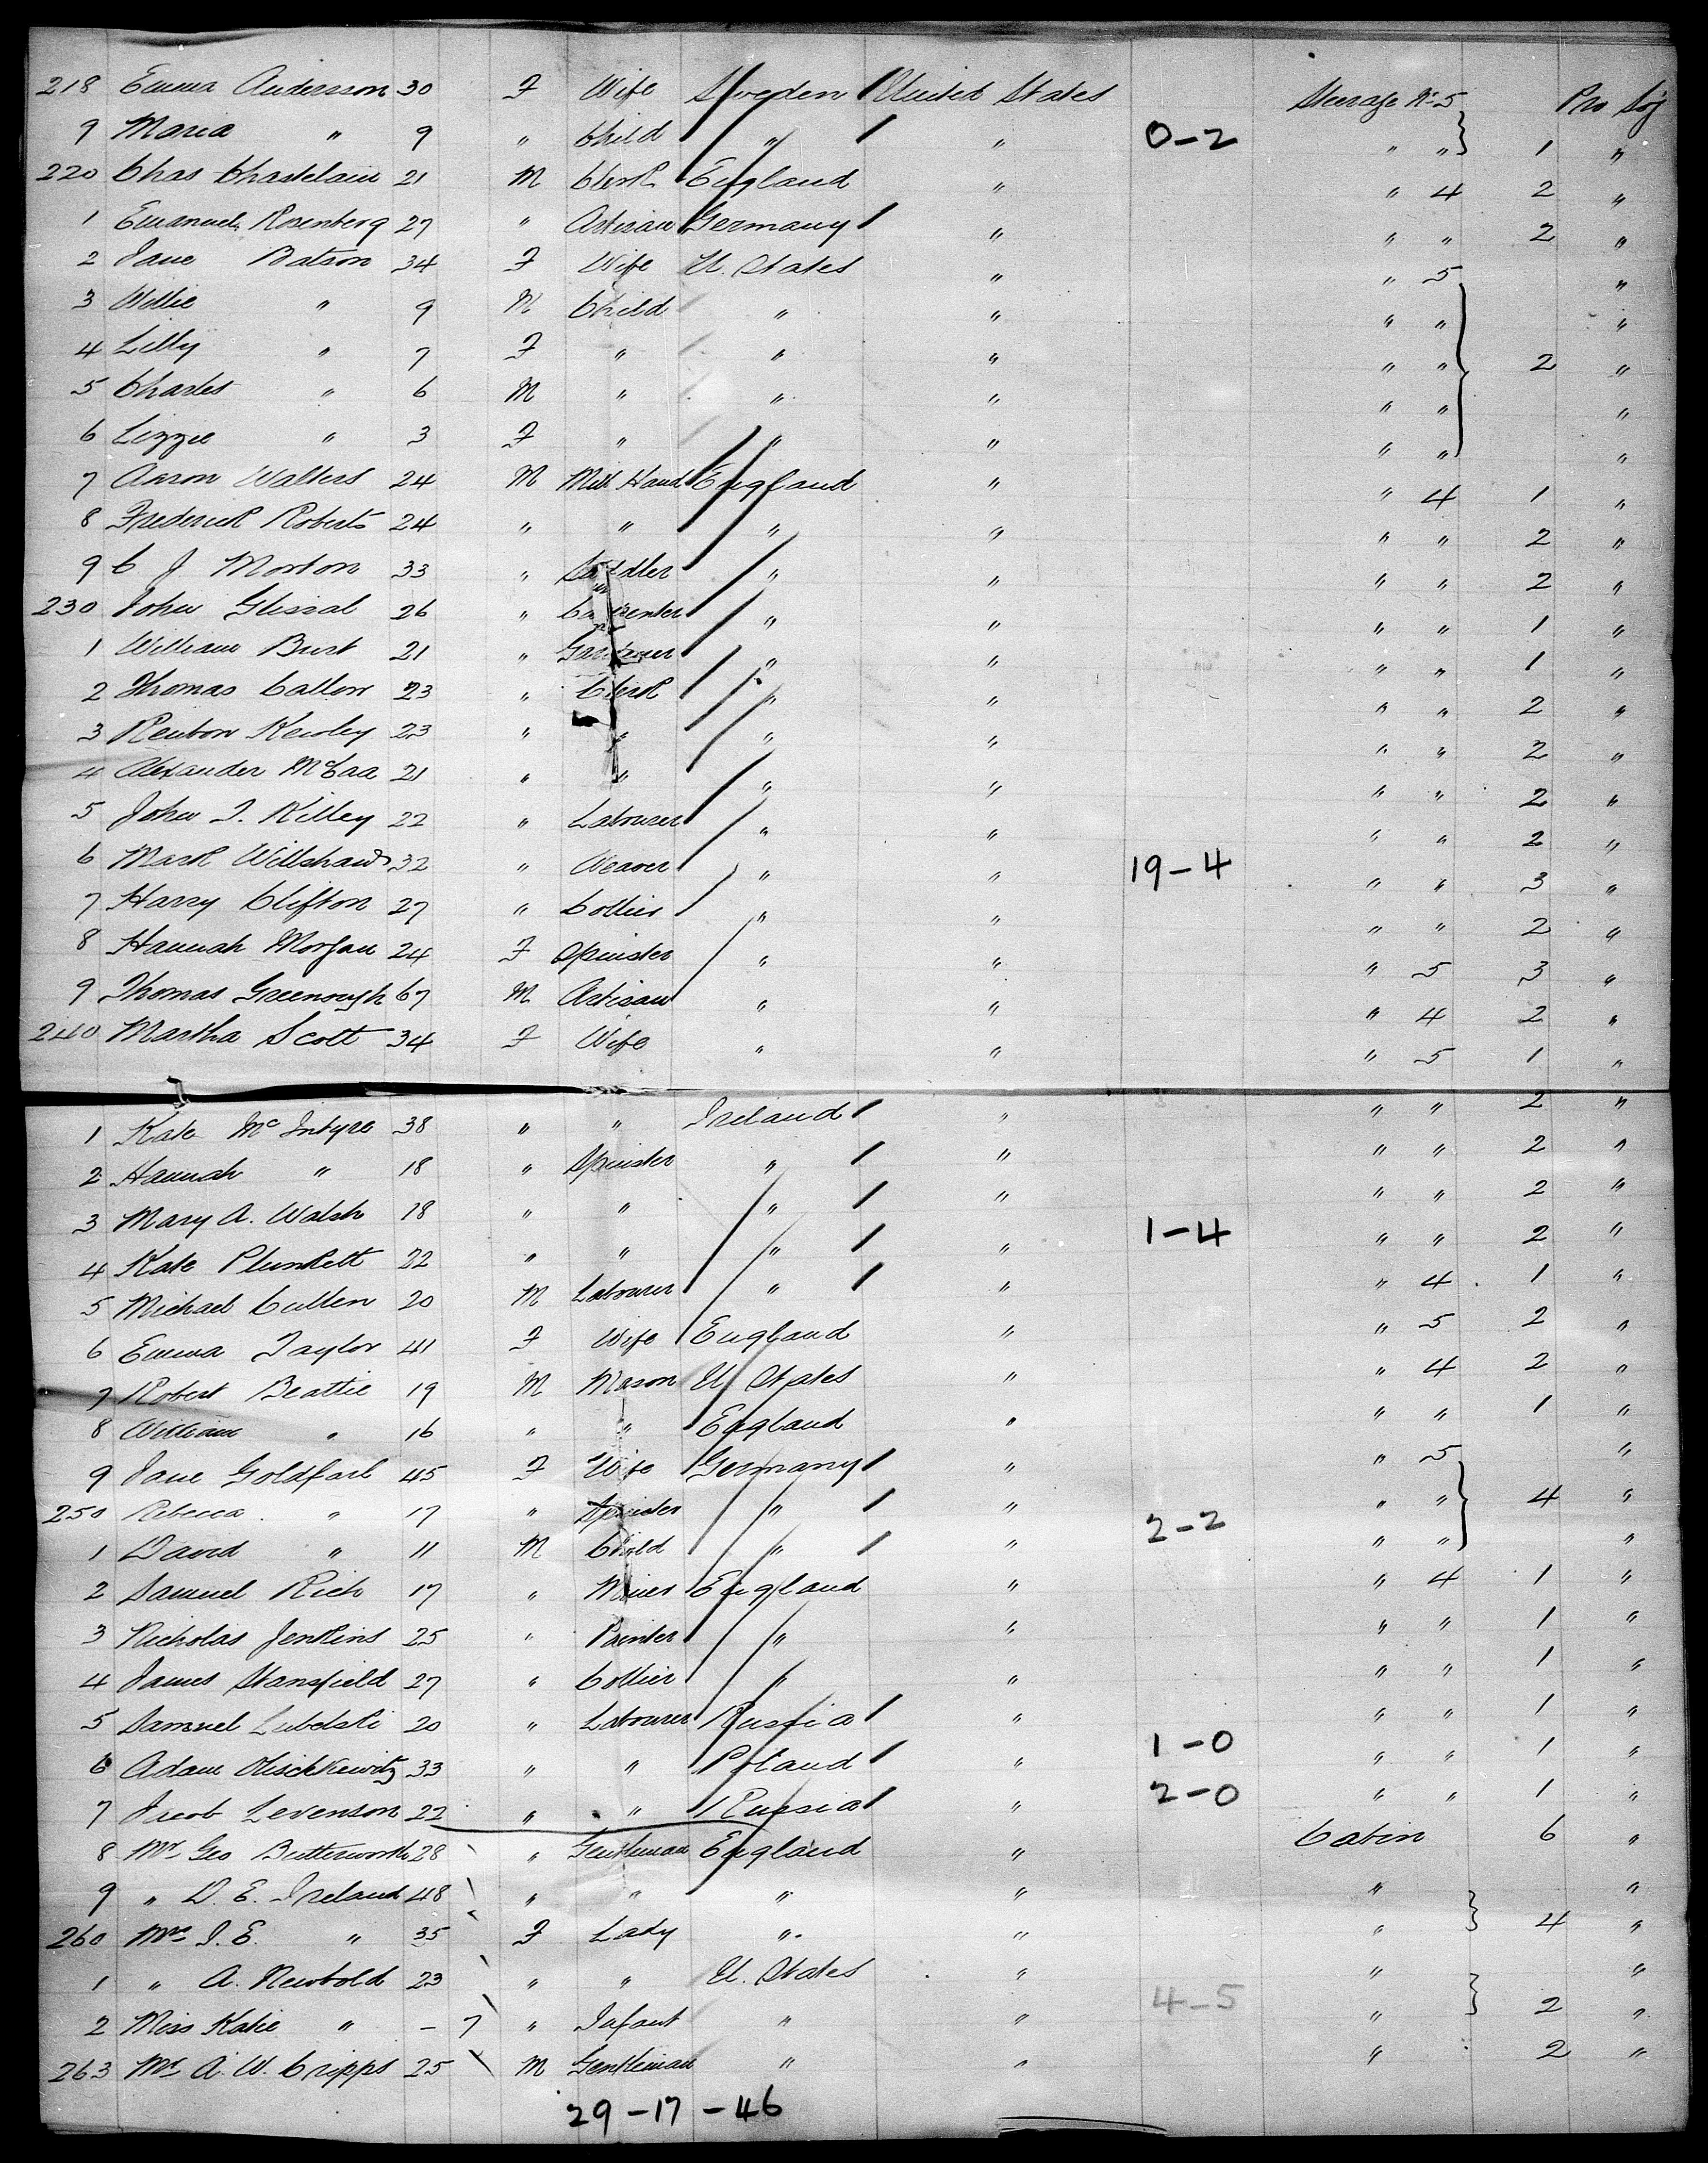 218 Emma Andersson 30 F Wife Sweden United States Steerage No 5 Pro Soj
9 Maria " 9 " Child " " 0-2 " " 1 "
220 Chas Chastelain 21 M Clerk England " " 4 2 "
1 Emanuel Rosenberg 27 " Artisan Germany " " " 2 "
2 Jane Batson 34 F Wife U. States " " 5 "
3 Willie " 9 M Child " " " " "
4 Lilly " 7 F " " " " " 2 "
5 Charles " 6 M " " " " " "
6 Lizzie " 3 F " " " " " "
7 Aaron Walters 24 M Mill Hand England " " 4 1 "
8 Frederick Roberts 24 " " " " " " 2 "
9 C J Morton 33 " " " " " 2 "
230 John 26 " Carpenter " " " " 1 "
1 William Burt 21 " Gardener " " " " 1 "
2 Thomas Callow 23 " Clerk " " " " 2 "
3 Reubon Kewley 23 " " " " " " 2 "
4 Alexander McCaa 21 " " " " " " 2 "
5 John J. Killey 22 " Labourer " " " " 2 "
6 Mark Willshaw 32 " Weaver " " 19-4 " " 3 "
7 Harry Clifton 27 " Collier " " " " 2 "
8 Hannah Morgan 24 F Spinster " " " 5 3 "
9 Thomas Greenough 67 M Artisan " " " 4 2 "
240 Martha Scott 34 F Wife " " " 5 1 "
1 Kate McIntyre 38 " " Ireland " " " 2 "
2 Hannah " 18 " Spinster " " " " 2 "
3 Mary A. Walsh 18 " " " " " " 2 "
4 Kate Plunkett 22 " " " " 1-4 " " 2 "
5 Michael Cullen 20 M Labourer " " " 4 1 "
6 Emma Taylor 41 F Wife England " " 5 2 "
7 Robert Beattie 19 M Mason U States " " 4 2 "
8 William " 16 " " England " " " 1 "
9 Jane Goldfarb 45 F Wife Germany " " 5 "
250 Rebecca " 17 " Spinster " " " " 4 "
1 David " 11 M Child " " 2-2 " " "
2 Samuel Rich 17 " Miner England " " 4 1 "
3 Nicholas Jenkins 25 " Painter " " " " 1 "
4 James Stansfield 27 " Collier " " " " 1 "
5 Samuel Lubelski 20 " Labourer Russia " " " 1 "
6 Adam 33 " " Poland " 1-0 " " 1 "
7 Jacob Levenson 22 " " Russia " 2-0 " " 1 "
8 Mr Geo Butterworth 28 " Gentleman England " Cabin 6 "
9 " D. E. Ireland 48 " " " " " "
260 Mrs J. E. " 35 F Lady " " " 4 "
1 " A. Newbold 23 " " U. States " " "
2 Miss Katie " - 7 " Infant " " 4-5 " 2 "
263 Mr A. W. Cripps 25 M Gentleman " " " 2 "
29-17-46